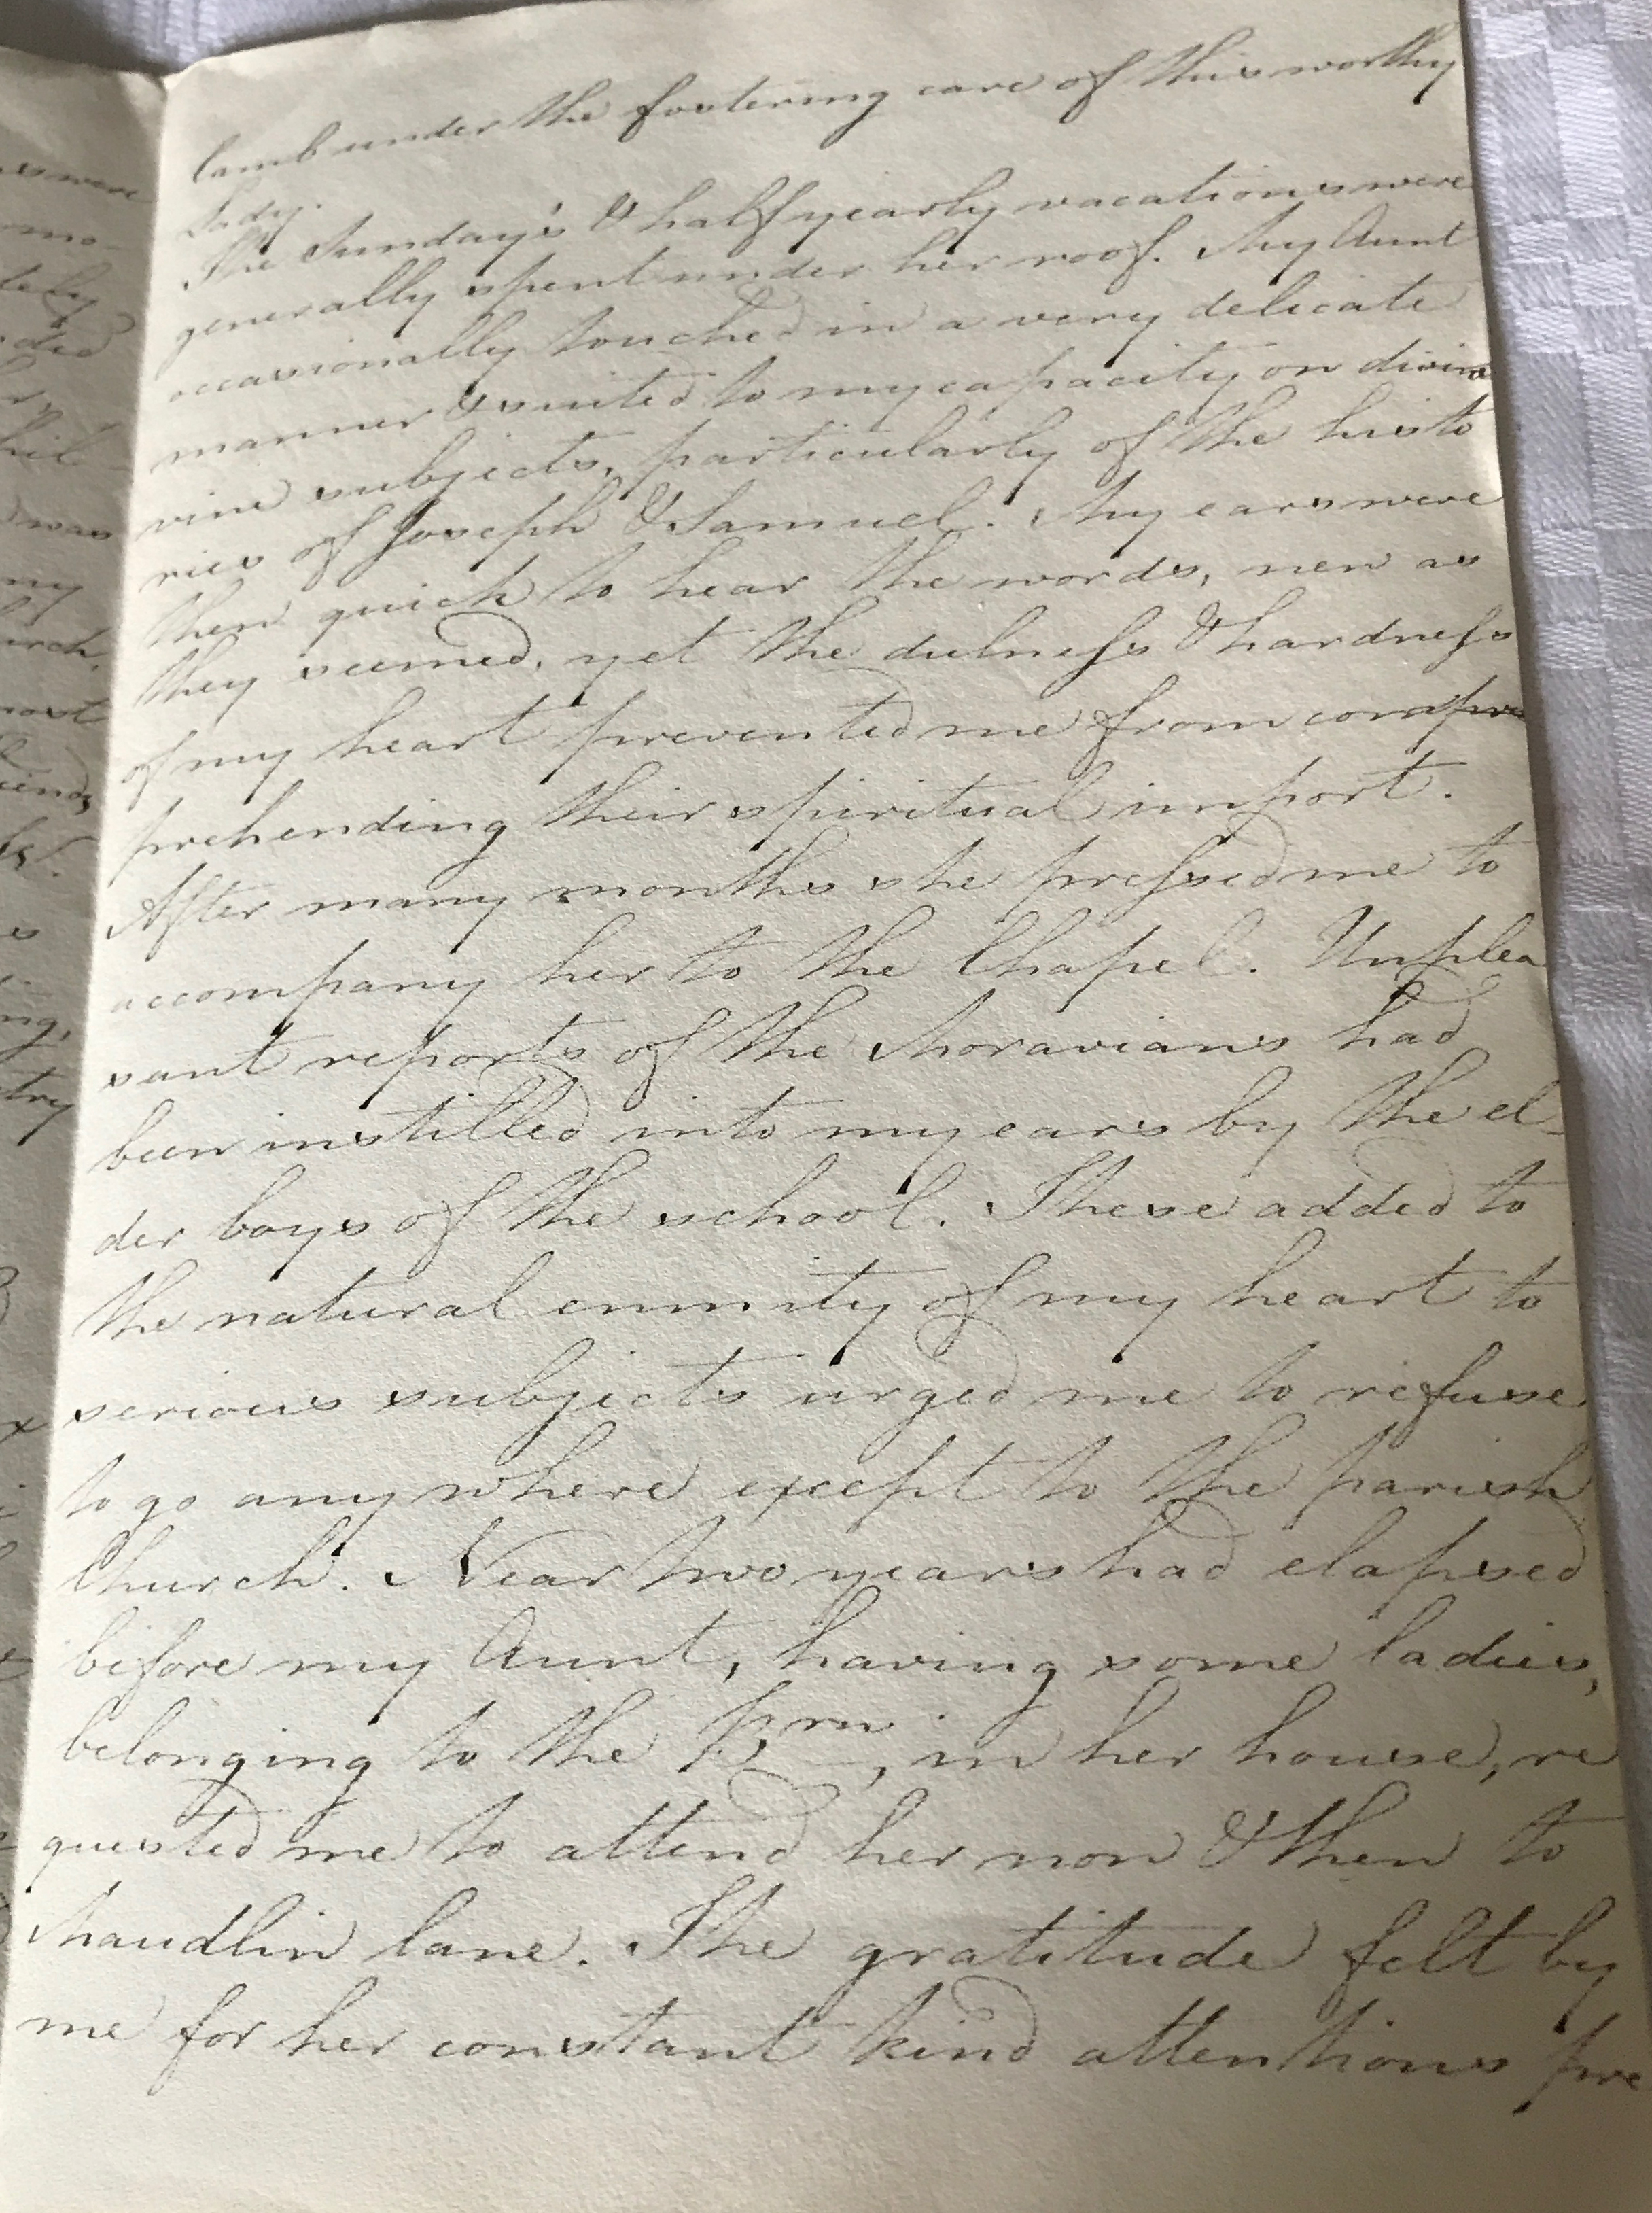 lamb under the fostering care of this worthy
Lady.
The Sunday's & half yearly vacations were
generally spent under her roof. My Aunt
occasionally touched in a very delicate
manner & suited to my capacity on divine
vine subjects, particularly of the histo
ries of Joseph & Samuel. My ears were
then quick to hear the words, new as
they seemed, yet the dulness & hardness
of my heart prevented me from compre
prehending their spiritual import.
After many months she pressed me to
accompany her to the Chapel. Unplea
sant reports of the Moravians had
been instilled into my ears by the el-
der boys of the school. These added to
the natural enmity of my heart to
serious subjects urged me to refuse
to go any where except to the parish
Church. Near two years had elapsed
before my Aunt, having some ladies,
belonging to the Brn, in her house, re
quested me to attend her now & then to
Maudlin lane. The gratitude felt by
me for her constant kind attentions pre